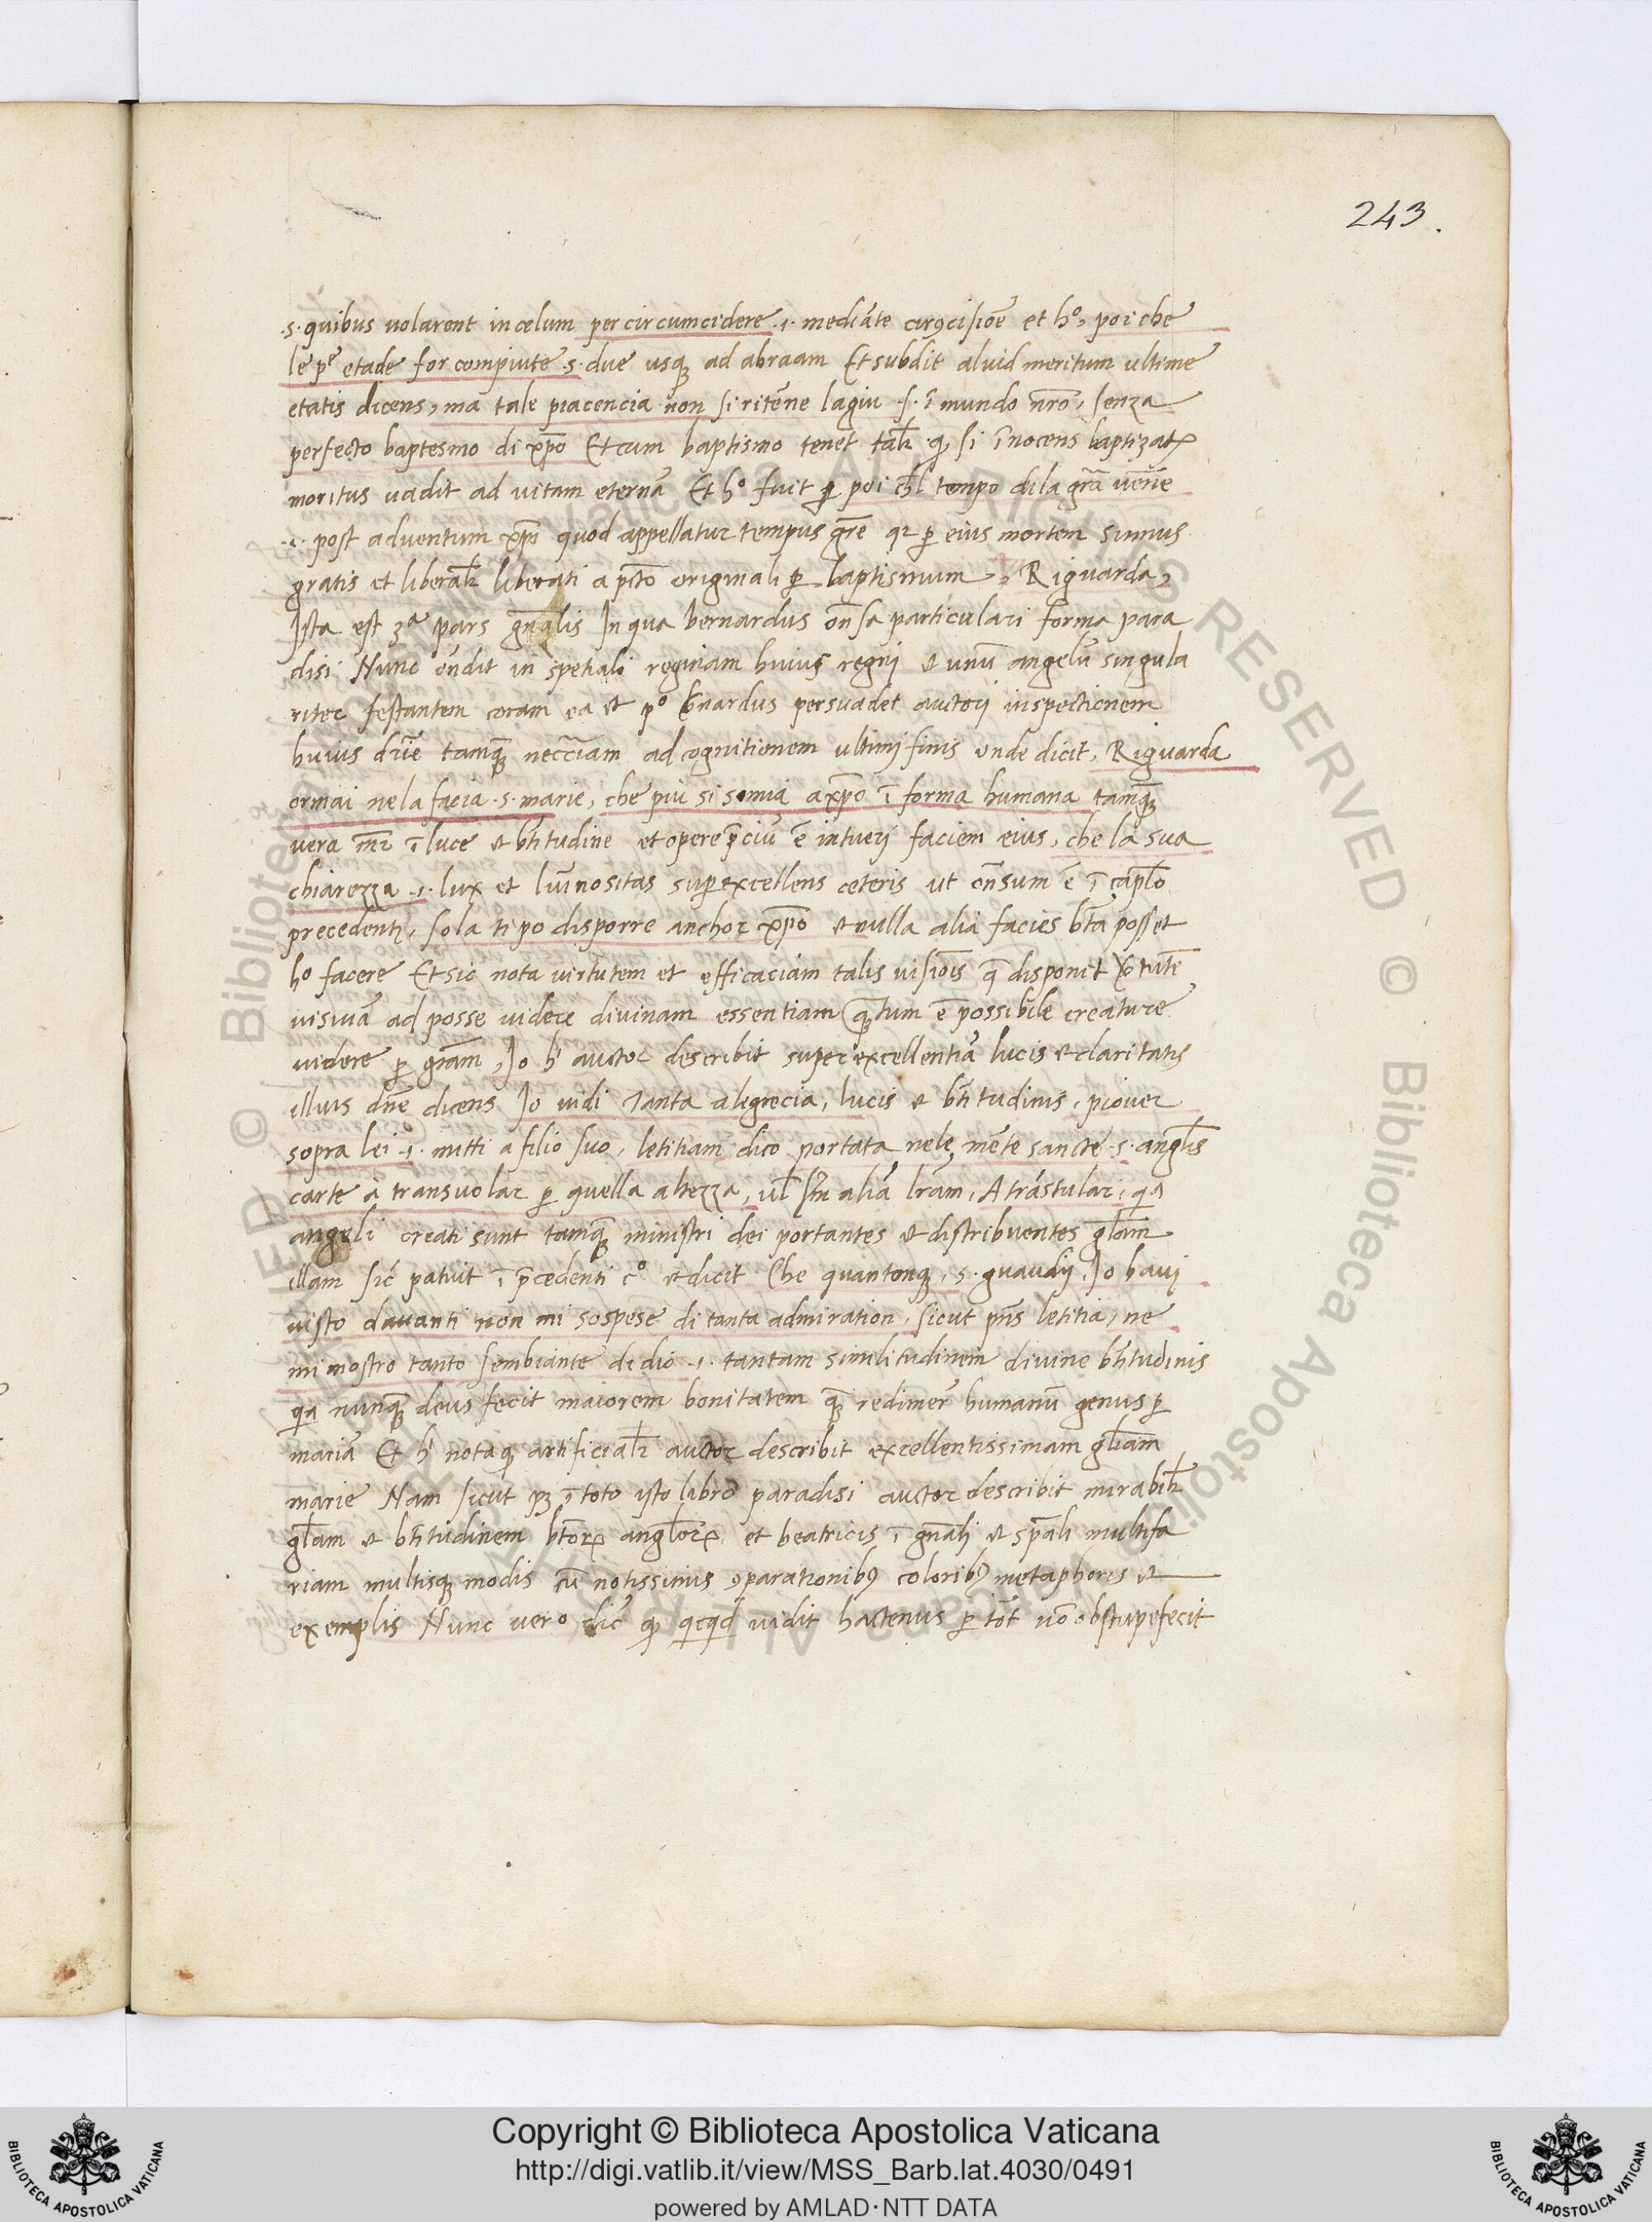 243.
.s. quibus volarent in celum per circumcidere .i. mediāte circ̄cisiōe et hº, poi che
le pᵉ etade for compiute .s. due usq; ad abraam Et subdit aluid meritum ultime
etatis dicens, ma tale piacencia non si ritēne lagiu .s. ī mundo nr̄o, senza
perfecto baptesmo di xp̄o Et cum baptismo tenet talr̄ q; si īnocens baptizatꝝ
moritus vadit ad vitam eternā Et hº fuit poi chl̄ tempo dila grā vēne
.i. post adventum xp̄i quod appellatur tempus grē qꝛ ꝑ eius mortem sumus
gratis et liberalr̄ liberati a pcto originali ꝑ baptismum, Riguarda,
Ista est 3ᵃ pars gn̄alis In qua bernardus on̄sa particulari forma para
disi Nunc ōndit in spetiali reginam huius regni et unū angelū singula
riter festantem coram ea et pº b̄nardus persuadet auctori inspectionem
huius dn̄e tamq; necc̄iam ad cognitionem ultimi finis unde dicit, Riguarda
ormai nela facia .s. marie, che piu si somia a xp̄o ī forma humana tamq;
vera mr̄ ī luce et bt̄itudine et opere p̄ciū ē intueri faciem eius, che la sua
chiarezza .i. lux et luīnositas superexcellens ceteris ut on̄sum ē ī capl̄o
precedenti, sola ti po disporre anchor xp̄o et nulla alia facies bt̄a posset
hº facere Et sic nota virtutem et efficaciam talis visiōis q̄ disponit v̄tutē
visivā ad posse videre divinam essentiam q̄tum ē possibile creature
videre ꝑ gr̄am, Io hⁱ auctor describit super excellentiā lucis et claritatis
illius dn̄e dicens Io vidi Tanta alegrecia, lucis et bt̄itudinis, piover
sopra lei .i. mitti a filio suo, letitiam dico portata nele mēte sancte .s. angl̄is
carte a transvolar ꝑ quella altezza, ul̄ sm̄ aliā lr̄am, A trāstular, qa
angeli creati sunt tamq; ministri dei portantes et distribuentes gl̄am
illam sic patuit ī p̄cedenti cº et dicit Che quantonq; .s. gaudij, Io havi
visto davanti non mi sospese di tanta admiration, sicut pn̄s letitia, ne
mi mostro tanto sembiante di dio .i. tantam similitudinem divine bt̄itudinis
qa nunq; deus fecit maiorem bonitatem q; redimer̄ humanū genus ꝑ
mariā Et hⁱ nota q; artificialr̄ auctor describit excellentissimam gl̄iam
marie Nam sicut pꝫ ī toto isto libro paradisi auctor describit mirabilr̄
gl̄am et bt̄itudinem bt̄orꝝ angl̄orꝝ et beatricis ī gn̄ali et sp̄ali multifa
riam multisq; modis cū notissimis ꝯparationibꝰ coloribꝰ metaphoris et
exemplis Nunc vero dic̄ q; qcqd vidit hactenus ꝑ tōt nō obstupefecit
Copyright © Biblioteca Apostolica Vaticana
http://digi.vatlib.it/view/MSS_Barb.lat.4030/0491
powered by AMLAD·NTT DATA